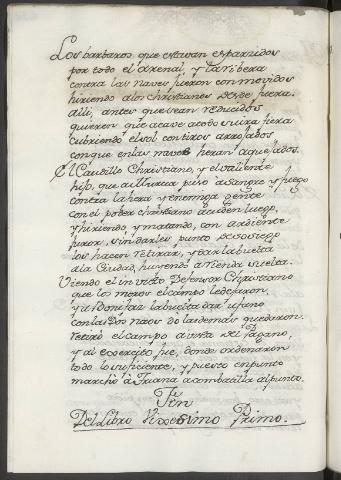 Los barbaros que estavan esparzidos
por todo el arenal, y la rivera
contra las naves fueron conmovidos
hiriendo a los christianos desde fuera.
alli, antes que sean reducidos
quieren que acave a todos su ira fiera
cubriendo el sol con tiros arrojados
con que en las naves heran aquejados.
El Caudillo Christiano, y el valiente
hijo, que a Murcia puso a sangre y fuego
contra la fiera y enemiga gente
con el poder christiano acuden luego,
y hiriendo, y matando, con ardiente
furor, sin darles punto de sosiego
los hacen retirar, y dar la buelta
a la Ciudad, huyendo a rienda suelta.
Viendo el invicto Defensor Christiano
que los moros el campo le dejaron,
y a Bonifaz la buelta dar ufano
con las Dos naos do las demas quedaron.
retiró el campo a vista del Pagano,
y al exercito fue, donde ordenaron
todo lo suficiente, y puesto en punto
marchó à Triana a combatilla al punto.
Fin
Del Libro Vixessimo Primo.